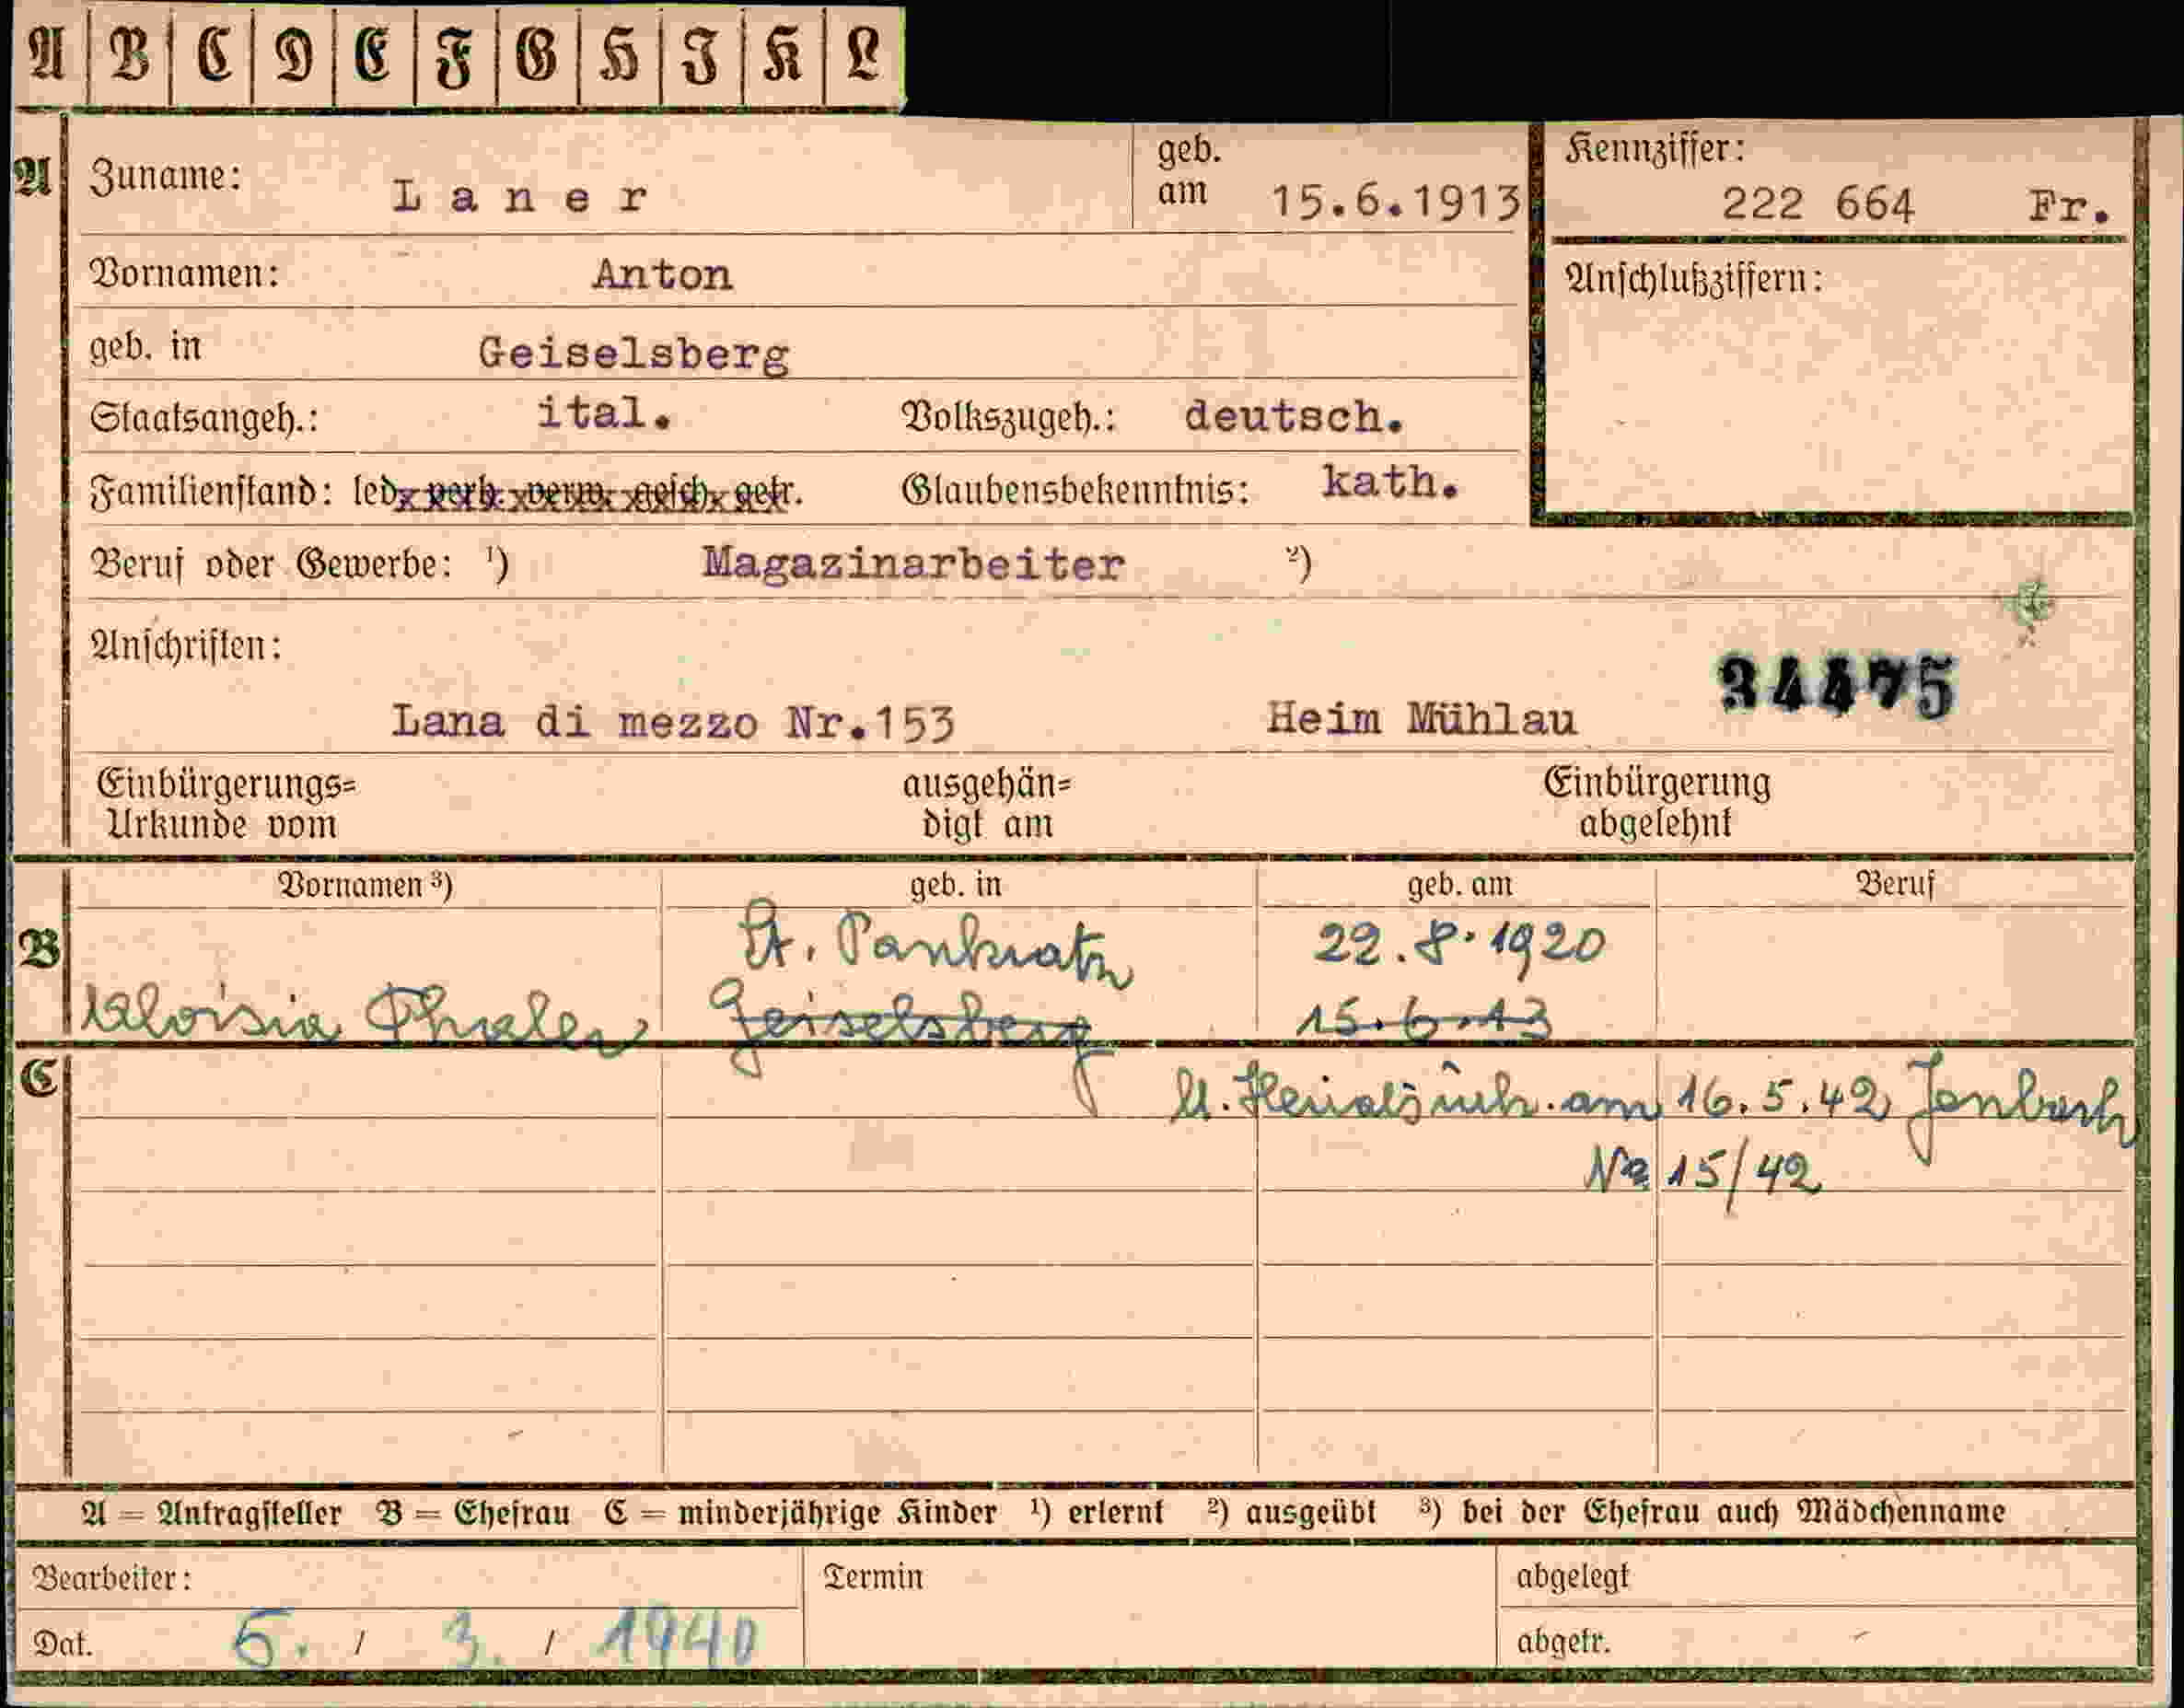 A B C D E F G H I K L
A Zuname: Laner geb. am 15.6.1913 Kennziffer: 222 664 Fr.
Vornamen: Anton Anschlußziffern:
geb. in Geiselsberg
Staatsangeh.: ital. Volkszugeh.: deutsch.
Familienstand: led. verh. verw. gesch. getr. Glaubensbekenntnis: kath.
Beruf oder Gewerbe: ¹) Magazinarbeiter ²)
Anschriften:
34475
Lana di mezzo Nr.153 Heim Mühlau
Einbürgerungs= ausgehän= Einbürgerung
Urkunde vom digt am abgelehnt
Vornamen ³) geb. in geb. am Beruf
B St. Pankratz 22.8.1920
Aloisia Geiselsberg 15.6.13
C am 16.5.42 Jenbach
15/42
A = Antragsteller B = Ehefrau C = minderjährige Kinder ¹) erlernt ²) ausgeübt ³) bei der Ehefrau auch Mädchenname
Bearbeiter: Termin abgelegt
Dat. 5. / 3. / 1940 abgetr.